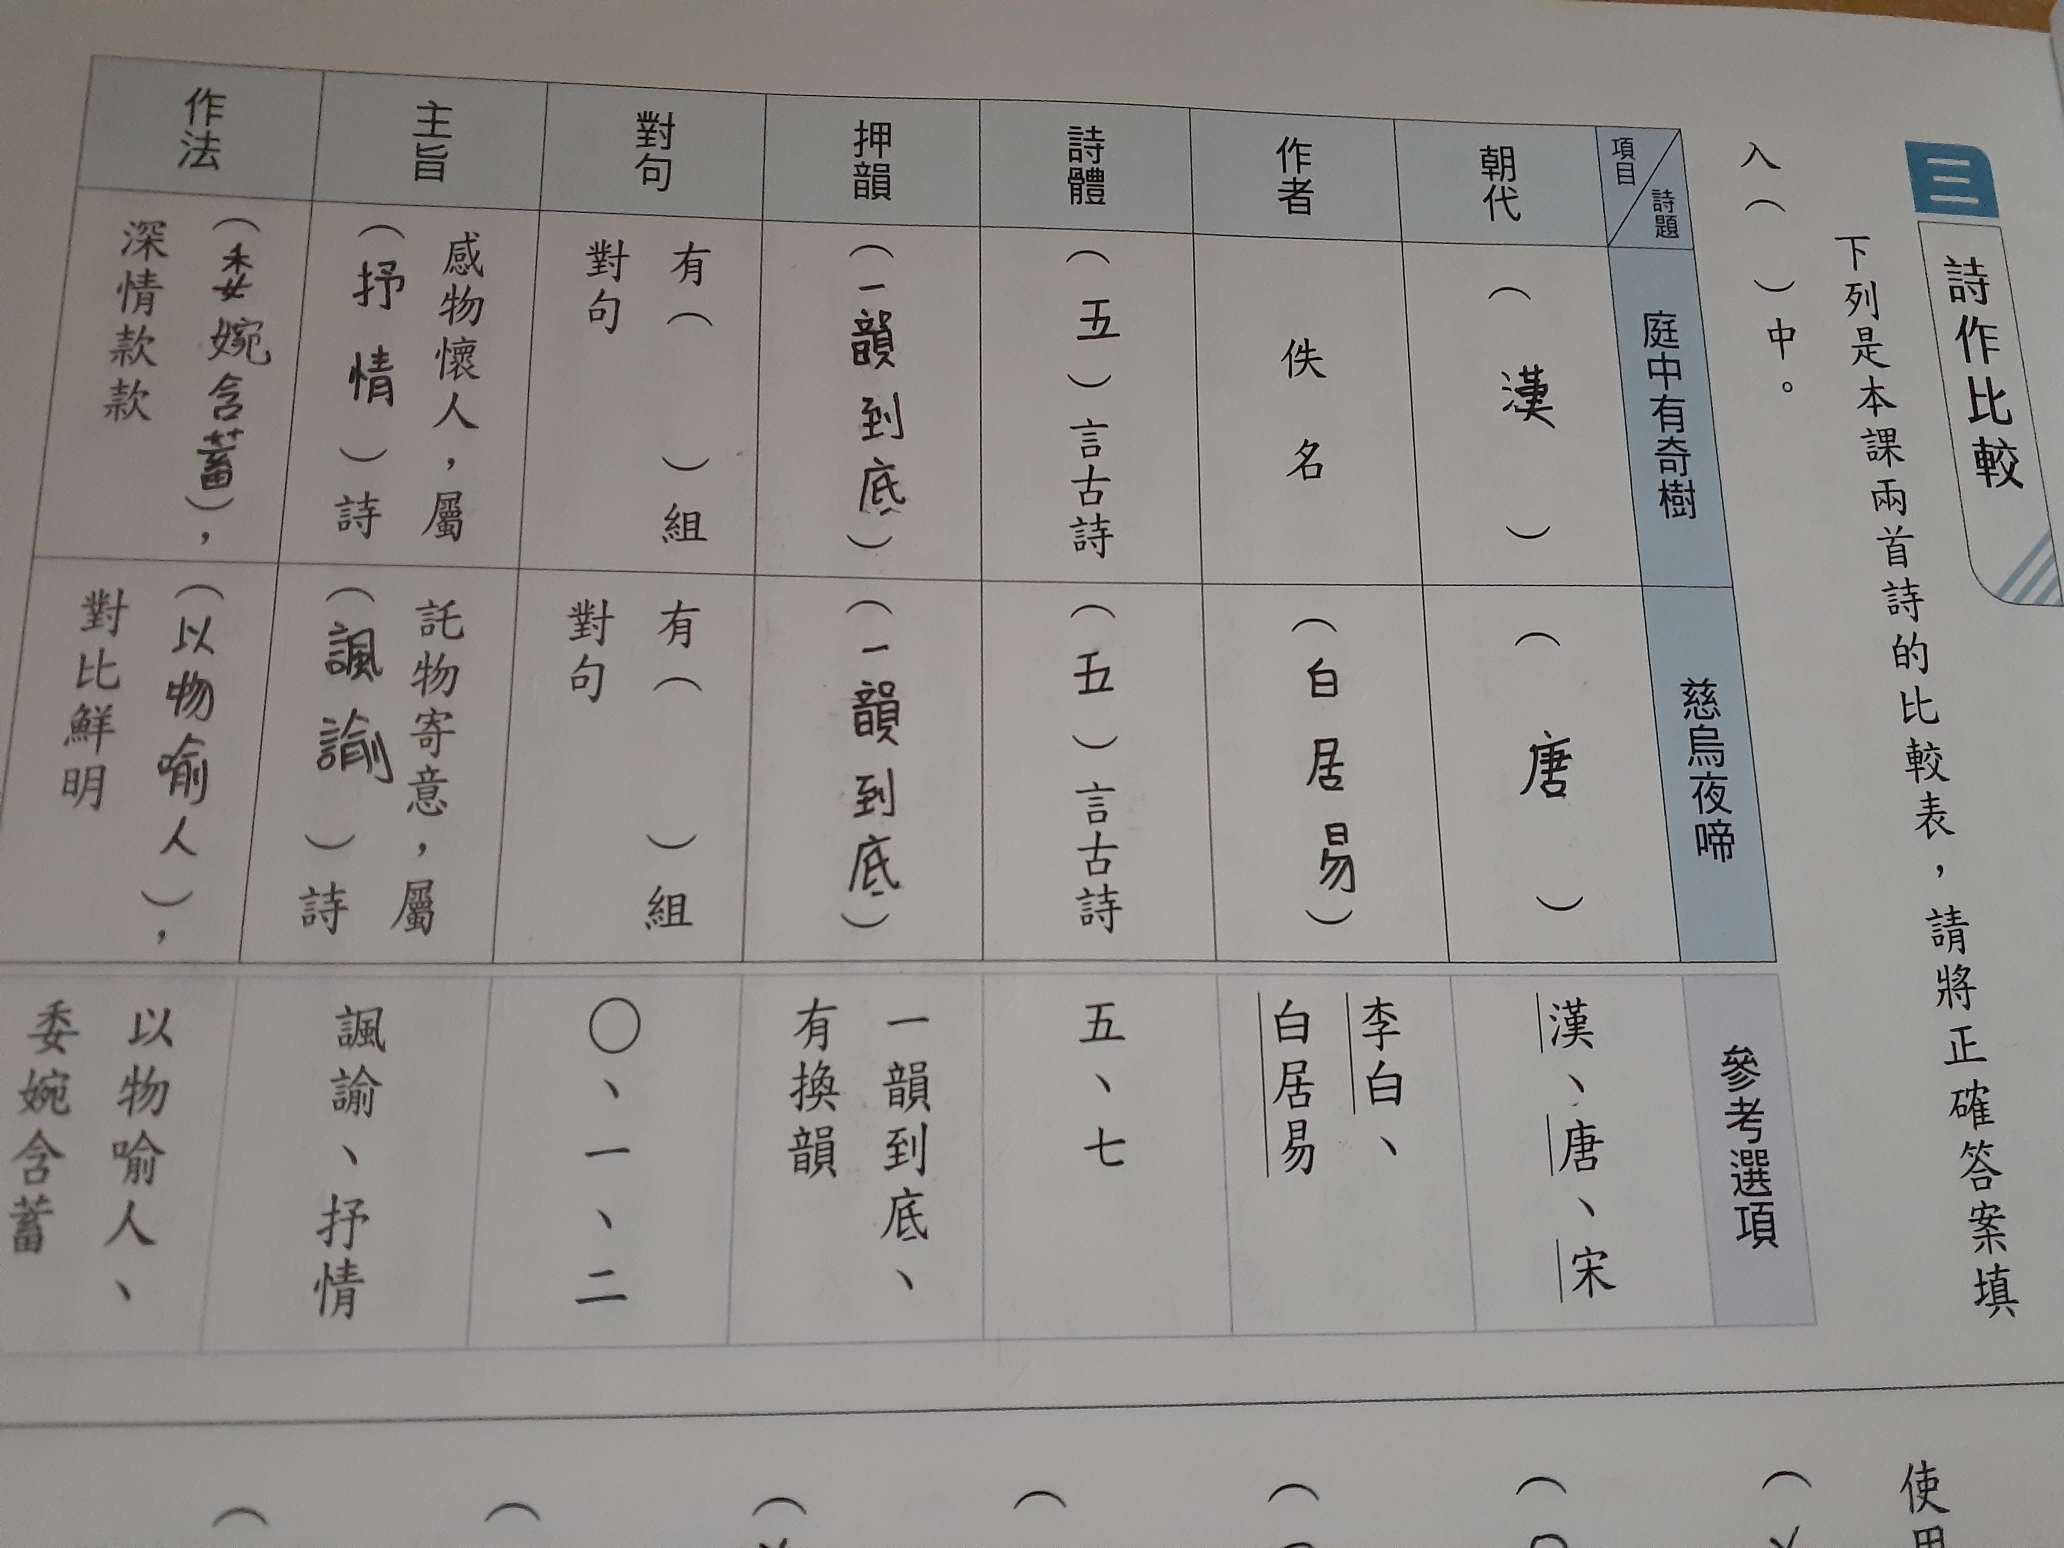 三 詩作比較
下列是本課兩首詩的比較表，請將正確答案填
入（ ）中。
項目 詩題
庭中有奇樹
慈烏夜啼
參考選項
朝代
（漢）
（唐）
漢、唐、宋
作者
佚名
（白居易）
李白、
白居易
詩體
（五）言古詩
（五）言古詩
五、七
押韻
（一韻到底）
（一韻到底）
一韻到底、
有換韻
對句
有（ ）組
對句
有（ ）組
對句
〇、一、二
主旨
感物懷人，屬
（抒情）詩
託物寄意，屬
（諷諭）詩
諷諭、抒情
作法
（委婉含蓄），
深情款款
（以物喻人），
對比鮮明
以物喻人、
委婉含蓄
使